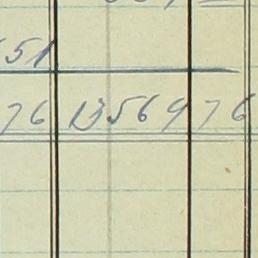 551
76 1356976